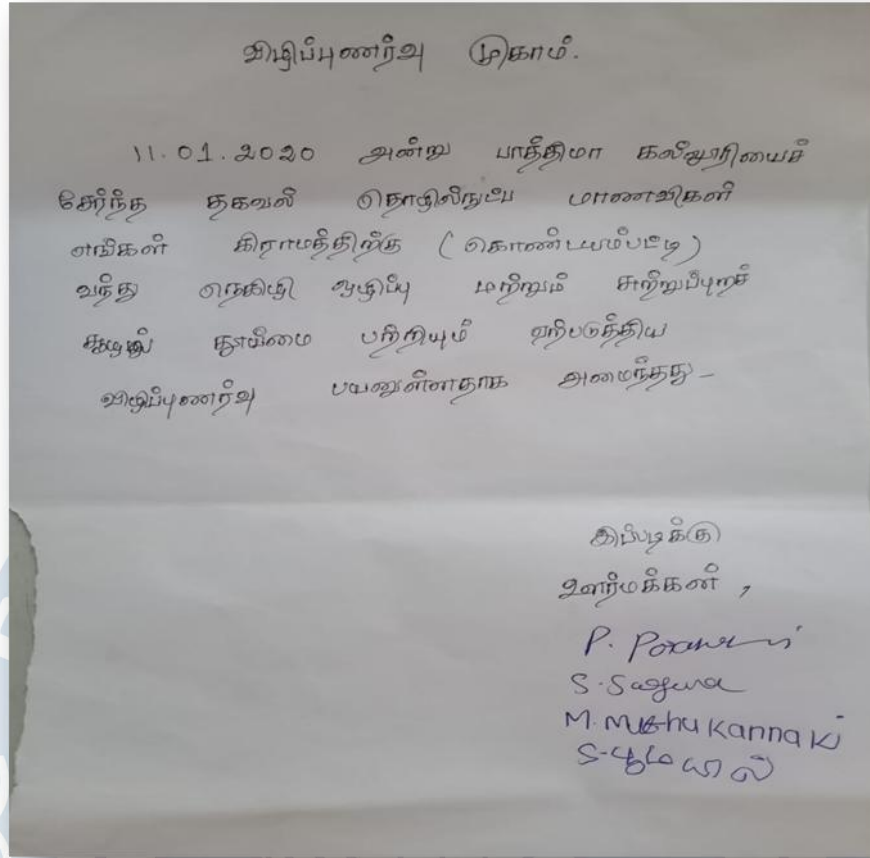 விழிப்புணர்வு முகாம்.
11.01.2020 அன்று பாத்திமா கல்லூரியைச்
சேர்ந்த தகவல் தொழில்நுட்ப மாணவிகள்
எங்கள் கிராமத்திற்கு (கொண்டயம்பட்டி)
வந்து நெகிழி ஒழிப்பு மற்றும் சுற்றுப்புறச்
தூய்மை பற்றியும் ஏற்படுத்திய
விழிப்புணர்வு பயனுள்ளதாக அமைந்தது-
இப்படிக்கு
ஊர்மக்கள்,
P.
S.
M. Muthu Kannaki
S.